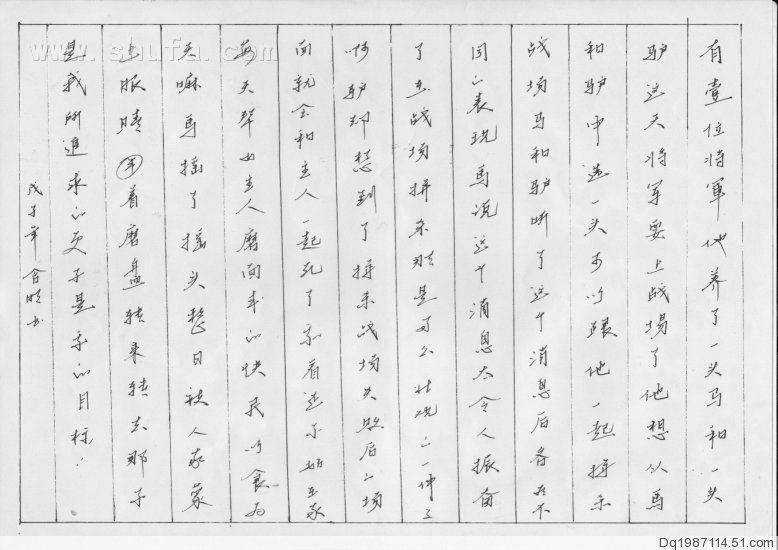 有壹位将軍他养了一头马和一头
驴这天将军要上战場了他想从马
和驴中选一头可以跟他一起搏杀
战场马和驴听了这个消息后各有不
同的表现马说这个消息太令人振奋
了在战场拼杀那是多么壮观的一件事
啊驴却想到了搏杀战场失败后的场
面就会和主人一起死了我看还不如在家
每天帮女主人磨面来的快民以食为
天嘛马摇了摇头整日被人家蒙
上眼睛 着磨盘转来转去那不
是我所追求的更不是我的目标
戊子年 书
www.shufa.com
Dq1987114.51.com